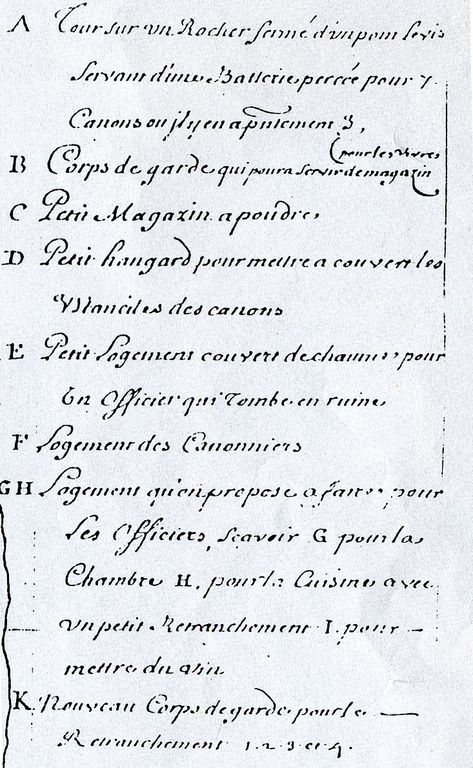 A Tour sur un Rocher fermé d'un pont levis
servant d'une Batterie percée pour 7
Canons ou il y en a pntement 3,
B Corps de garde qui poura servir de magazin
(pour les vivres
C Petit Magazin a poudre
D Petit hangard pour mettre a couvert les
Ustanciles des canons
E Petit Logement couvert de chaume pour
Un Officier qui Tombe en ruine
F Logement des Canonniers
GH Logement qu'on propose a faire pour
Les Officiers, scavoir G pour la
Chambre H. pour la Cuisine avec
un petit Retranchement I. pour
mettre du vin
K Nouveau Corps de garde pour le
Retranchement 1. 2. 3 et 4.